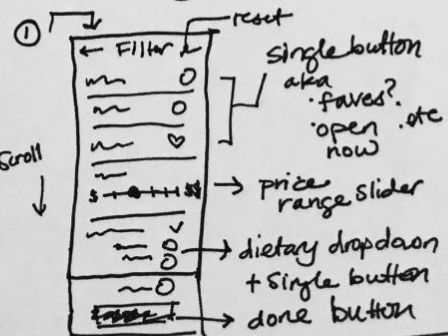 ①
reset
← Filter
single button
aka
·faves?
·open ·etc
now
scroll
$ $$
→ price
range slider
→ dietary dropdown
+ single button
→ done button